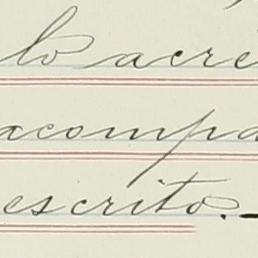 lo acre
acompa
escrito.